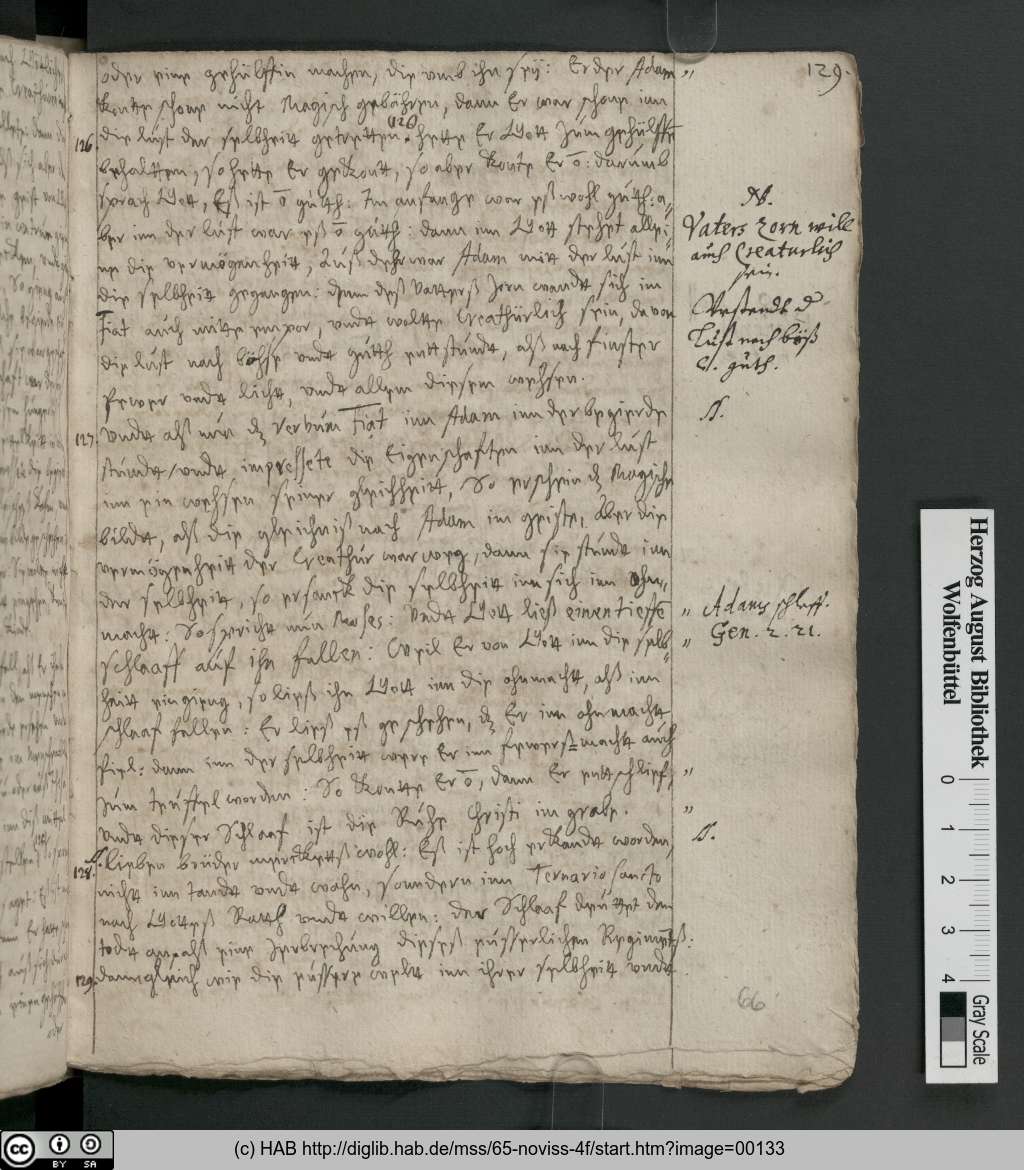 129.
oder eine gehülffin machen, die umb ihn seÿ: Er der Adam „
konte schone nicht Magisch gebähren, dann Er war schone inn
126. die lust der selbheitt getretten. 120 hette Er Gott zum gehülffe
behaltten, so hette Er gekont, so aber konte Er o̅: darumb
sprach Gott, Eß ist o̅ guth: Im anfange war eß wohl guth: a,
ber inn der lust war eß o̅ guth: dann inn Gott stehet allei,
ne die vermögenheitt, auß dehr war Adam mitt der lust inn
die selbheitt gegangen: denn deß Vatterß Zorn wandt sich im
Fiat auch mitte empor, undt wolte Creathürlich sein, davon
die lust nach böhse undt guth entstundt, alß nach finster
feuer undt licht, undt allem diesem wehsen.
127. Undt alß nun dz verbum Fiat inn Adam inn der begierde
stundt, undt impressete die Eigenschafften inn der lust
inn ein wehsen seiner gleichheitt, So erschein dz Magische
bildt, alß die gleichniß nach Adam im geiste, Aber die
vermögenheitt der Creathur war weg, dann sie stundt inn
der selbheitt, so ersanck die selbheitt inn sich inn Ohn,
macht: So spricht nun Moses: Undt Gott ließ einen tieffe
schlaaff auf ihn fallen: Weil Er von Gott inn die selb=
heitt eingieng, so ließ ihn Gott inn die ohnmacht, alß inn
schlaaf fallen: Er ließ eß geschehen, dz Er inn ohnmacht
fiel: dann inn der selbheitt were Er inn feuerß=macht auch
zum teuffel worden: So konte Er o̅, dann Er entschlief,
Undt dieser Schlaaf ist die Ruhe Christi im grabe.
128. Lieben brüder mercketß wohl: Eß ist hoch erkandt worden,
nicht inn tandt undt wahn, sondern inn Ternario sancto
nach Gotteß Rath undt willen: der Schlaaf deutet den
todt an, alß eine Zerbrechung dieseß eusserlichen Regimentß:
129. dann gleich wie die eussere weldt inn ihrer selbheitt undt
NB.
Vaters Zorn will
auch Creaturlich
sein.
Verstandt d
Lust nach böß
V. guth.
N.
„ Adams schlaff.
„ Gen. 2. 21.
„
„
N.
66
Herzog August Bibliothek
Wolfenbüttel
0 1 2 3 4
Gray Scale
cc BY SA
(c) HAB http://diglib.hab.de/mss/65-noviss-4f/start.htm?image=00133